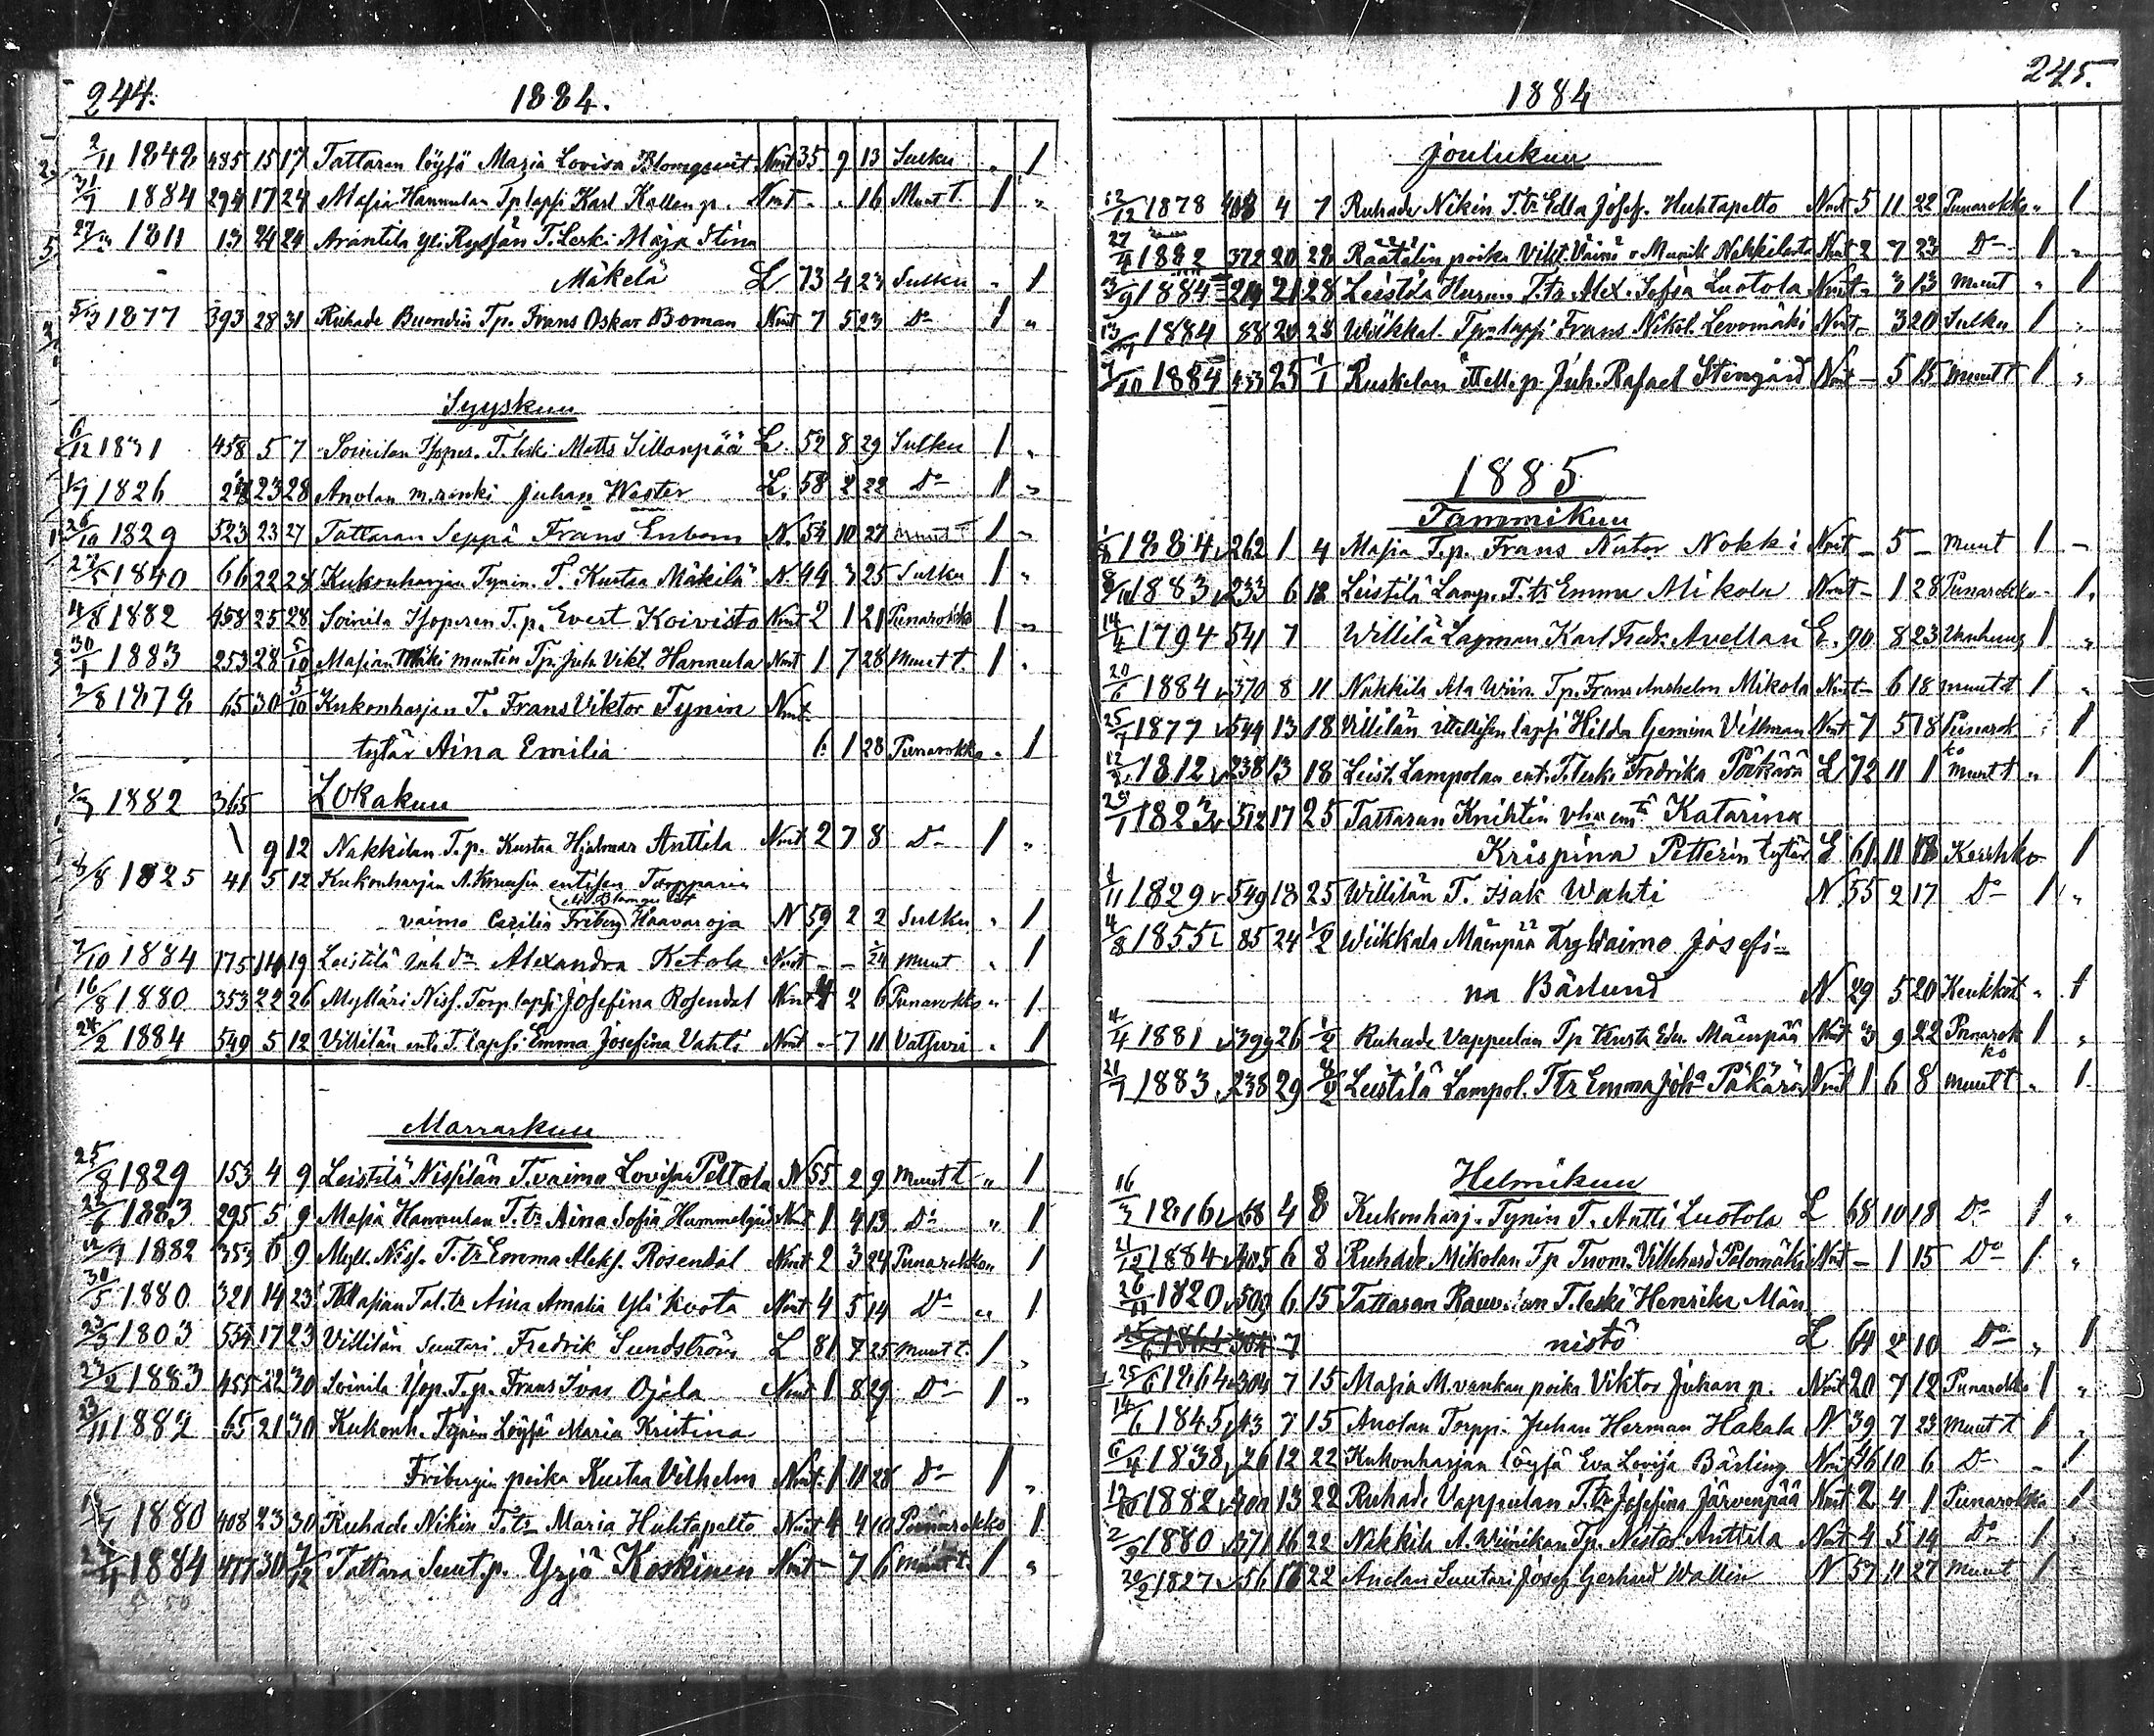 244.
1884.
2/11 1848 485 15 17 Tattaran löysä Maria Lovisa Blomqvist Nmt 35 9 13 Sulku " 1
31/7 1884 294 17 24 Masia Hannulan Tp lapsi Karl Kallen p. Nmt - - 16 Muut t. 1 "
1811 13 24 24 Arantila Yli Ryssän T. Leski Maja Stina
Mäkelä L 73 4 23 Sulku " 1
1877 393 28 31 Ruhade Buendin Tp. Frans Oskar Boman Nmt 7 5 23 Do 1 "
Syyskuu
6/12 1831 458 5 7 Soinilan T. leski Matts Sillanpää L. 52 8 29 Sulku 1 "
1826 23 28 Anolan m. renki Juhan Wester L. 58 2 22 Do 1 "
1829 523 23 27 Tattaran Seppä Frans Enbom N. 54 10 27 1 "
1840 66 22 28 Kukonharjan Tynin. T. Kustaa Mäkilä N. 44 3 25 Sulku 1 "
4/8 1882 458 25 28 Soinila T. p. Evert Koivisto Nmt 2 1 21 Punarokko 1 "
30/1 1883 253 28 5/10 Masian Mäki muntin Tp. Juh. Vikt. Hannula Nmt 1 7 28 Muut t. 1 "
2/8 1878 65 30 5/10 Kukonharjan T. Frans Viktor Tynin Nmt
tytär Aina Emilia 6 1 28 Punarokko " 1
1882 365 Lokakuu
9 12 Nakkilan T. p. Kustaa Hjalmar Anttila Nmt 2 7 8 Do 1 "
8/8 1825 41 5 12 Kukonharjan entisen Torpparin
vaimo Cecilia Friberg Haavaroja N 59 2 2 Sulku " 1
7/10 1884 175 14 19 Leistilä Alexandra Ketola Nmt - - muut " 1
16/8 1880 353 22 26 Mylläri Niss. Torp lapsi Josefina Rosendal Nmt 4 2 6 Punarokko " 1
24/2 1884 549 5 12 Villilän enti T. lapsi Emma Josefina Vahti Nmt - 7 11 Vatsuri " 1
Marraskuu
25/8 1829 153 4 9 Leistilä Nissilän T. vaimo Lovisa Peltola N 55 2 9 Muut t. " 1
1883 295 5 9 Masia Hannulan T. tr Aina Sofia Nmt 1 4 13 Do " 1
1882 353 6 9 Myll. Niss. T. tr Emma Aleks. Rosendal Nmt 2 3 24 Punarokko " 1
30/5 1880 321 14 23 Masian Tal. tr Aina Amalia Yli Kvota Nmt 4 5 14 Do " 1
1803 534 17 23 Villilän Suutari Fredrik Sundström L 81 7 25 Muut t. 1 "
1883 455 22 30 Soinila T. p. Frans Ivar Ojala Nmt 1 8 29 Do 1 "
23/11 1882 65 21 30 Kukonh. Tynin Löysä Maria Kristina
Fribergin poika Kustaa Vilhelm Nmt. 1 11 28 Do 1 "
1880 408 23 30 Ruhade Nikin T. tr Maria Huhtapelto Nmt 4 4 10 Punarokko 1
1884 477 30 7/12 Tattara Suut. p. Yrjö Koskinen Nmt - 7 6 muut t. 1 "
245.
1884
Joulukuu
12/12 1878 408 4 7 Ruhade Nikin T. tr Edla Josef. Huhtapelto Nmt 5 11 22 Punarokko " 1
27/4 1882 372 20 28 Räätälin poika Vikt. Väinö Nakkilasta Nmt 2 7 23 Do 1 "
1884 21 28 Leistilä T. tr Alex. Sofia Luotola Nmt - 3 13 muut " 1
1884 88 20 28 Wiikkal. Tp lapsi Frans Nikol. Levomäki Nmt - 3 20 Sulku 1 "
7/10 1884 433 25 1/1 Ruskelan Juh. Rafael Stengård Nmt - 5 15 Muut t 1 "
1885
Tammikuu
1/8 1884 262 1 4 Masia T. p. Frans Nestor Nokki Nmt - 5 - Muut 1 -
1883 233 6 18 Leistilä Lamp. T. tr Emma Mikola Nmt - 1 28 Punarokko - 1.
14/4 1794 541 7 Willilä Lagman Karl Fredr. Avellan E. 90 8 23 Vanhuus 1 "
20/6 1884 370 8 11 Nakkila Ala Wiin. Tp. Frans Anshelm Mikola Nmt - 6 18 muut t 1 "
25/7 1877 544 13 18 Villilän itsellisen lapsi Hilda Gemina Villman Nmt 7 5 18 Punarok ko " 1
1812 238 13 18 Leist. Lampolan ent. T. leski Fredrika Päkärä L 72 11 1 muut t " 1
29/1 1823 512 17 25 Tattaran Knihtin Katarina
Krispina Petterin tytär E 61 11 18 Keuhko 1
1829 549 18 25 Willilän T. Isak Wahti N 55 2 17 Do 1 "
4/8 1855 85 24 1/2 Wiikkala Mäenpää vaimo Josefi-
na Bärlund N 29 5 20 Keuhkot " 1
4/4 1881 399 26 1/2 Ruhade Vappulan Tp Kusta Edv. Mäenpää Nmt 3 9 22 Punarok ko 1 "
21/7 1883 238 29 8/2 Leistilä Lampol. T tr Emma Joha Päkärä Nmt 1 6 8 muut t " 1
Helmikuu
16/3 1816 68 4 8 Kukonharj. Tynin T. Antti Luotola L 68 10 18 Do 1 "
21/12 1884 405 6 8 Ruhade Mikolan Tp Tuom. Villehard Palomäki Nmt - 1 15 Do 1 "
26/11 1820 509 6 15 Tattaran T. leski Henrika Män
nistö L 64 2 10 Do " 1
25/6 1864 304 7 15 Masia M. vankan poika Viktor Juhan p. Nmt 20 7 12 Punarokko 1 "
14/6 1845 43 7 15 Anolan Torpp. Juhan Herman Hakala N 39 7 23 Muut t 1 "
6/4 1838 26 12 22 Kukonharjan löysä Eva Lovisa Bärling Nmt 46 10 6 Do " 1
1882 400 13 22 Ruhade Vappulan T. tr Josefina Järvenpää Nmt 2 4 1 Punarokko 1
2/9 1880 371 16 22 Nakkila A. Wiinikan Tp. Nestor Anttila Nmt 4 5 14 Do 1 "
1827 56 17 22 Anolan Suutari Josef Gerhard Wallin N 57 11 27 Muut 1 "